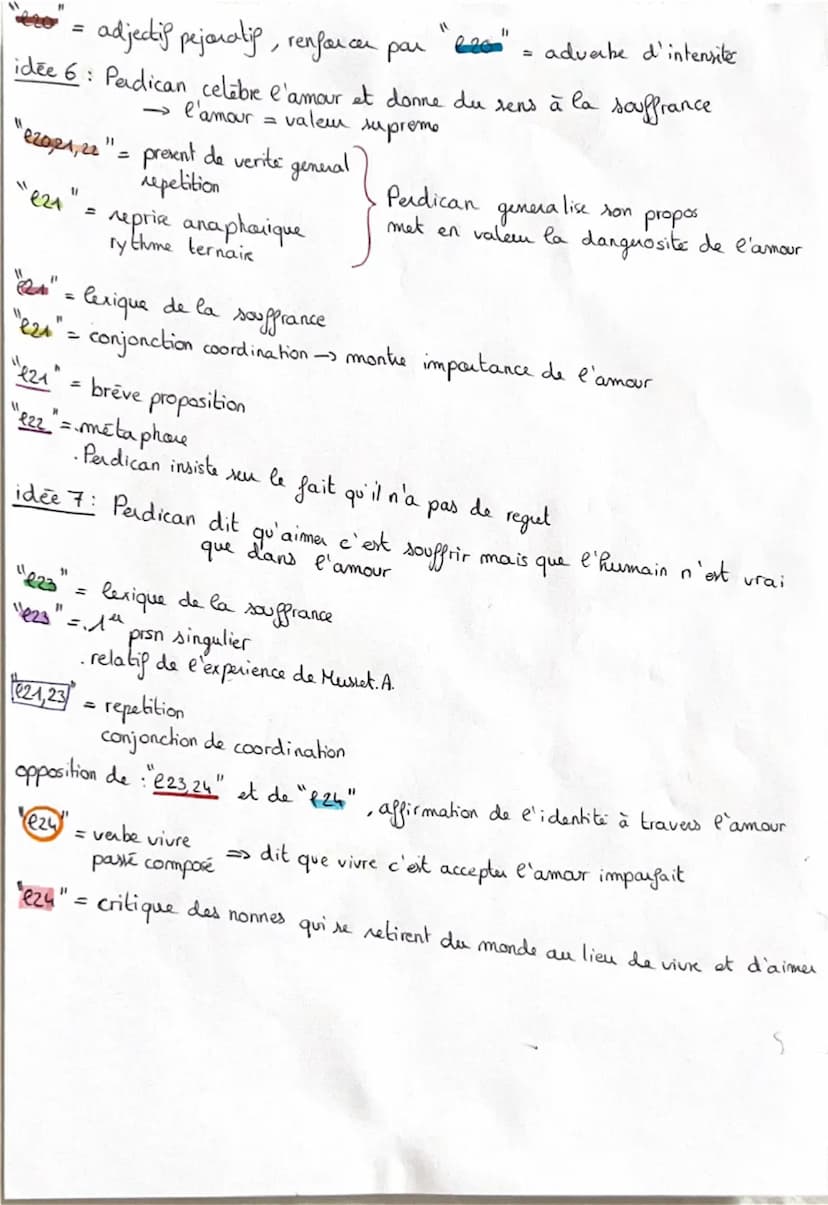 "l20" = adjectif pejoratif, renforcer par "l20" = adverbe d'intensité
idée 6 : Perdican celèbre l'amour et donne du sens à la souffrance
→ l'amour = valeur supreme
"l20,21,22" = present de verité general
repetition
"l21" = reprise anaphorique
rythme ternaire
Perdican generalise son propos
met en valeur la dangrosité de l'amour
"l21" = lexique de la souffrance
"l21" = conjonction coordination → montre importance de l'amour
"l21" = brève proposition
"l22" = . métaphore
. Perdican insiste sur le fait qu'il n'a pas de regret
idée 7 : Perdican dit qu'aimer c'est souffrir mais que l'humain n'est vrai
que dans l'amour
"l23" = lexique de la souffrance
"l23" = . 1ère prsn singulier
. relatif de l'experience de Musset.A.
"l21,23" = repetition
conjonction de coordination
opposition de : "l23,24" et de "l24", affirmation de l'identité à travers l'amour
"l24" = verbe vivre
passé composé ⇒ dit que vivre c'est accepter l'amour imparfait
"l24" = critique des nonnes qui se retirent du monde au lieu de vivre et d'aimer